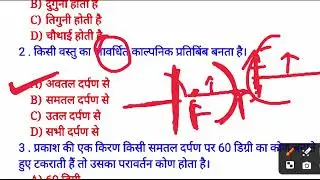 B) दुगुनी होती है
C) तिगुनी होती है
D) चौथाई होती है
2 . किसी वस्तु का आवर्धित काल्पनिक प्रतिबिंब बनता है।
A) अवतल दर्पण से
B) समतल दर्पण से
C) उतल दर्पण से
D) सभी दर्पण से
3 . प्रकाश की एक किरण किसी समतल दर्पण पर 60 डिग्री का कोण
हुए टकराती हैं तो उसका परावर्तन कोण होता है।
A) 60 डिग्री
F
F